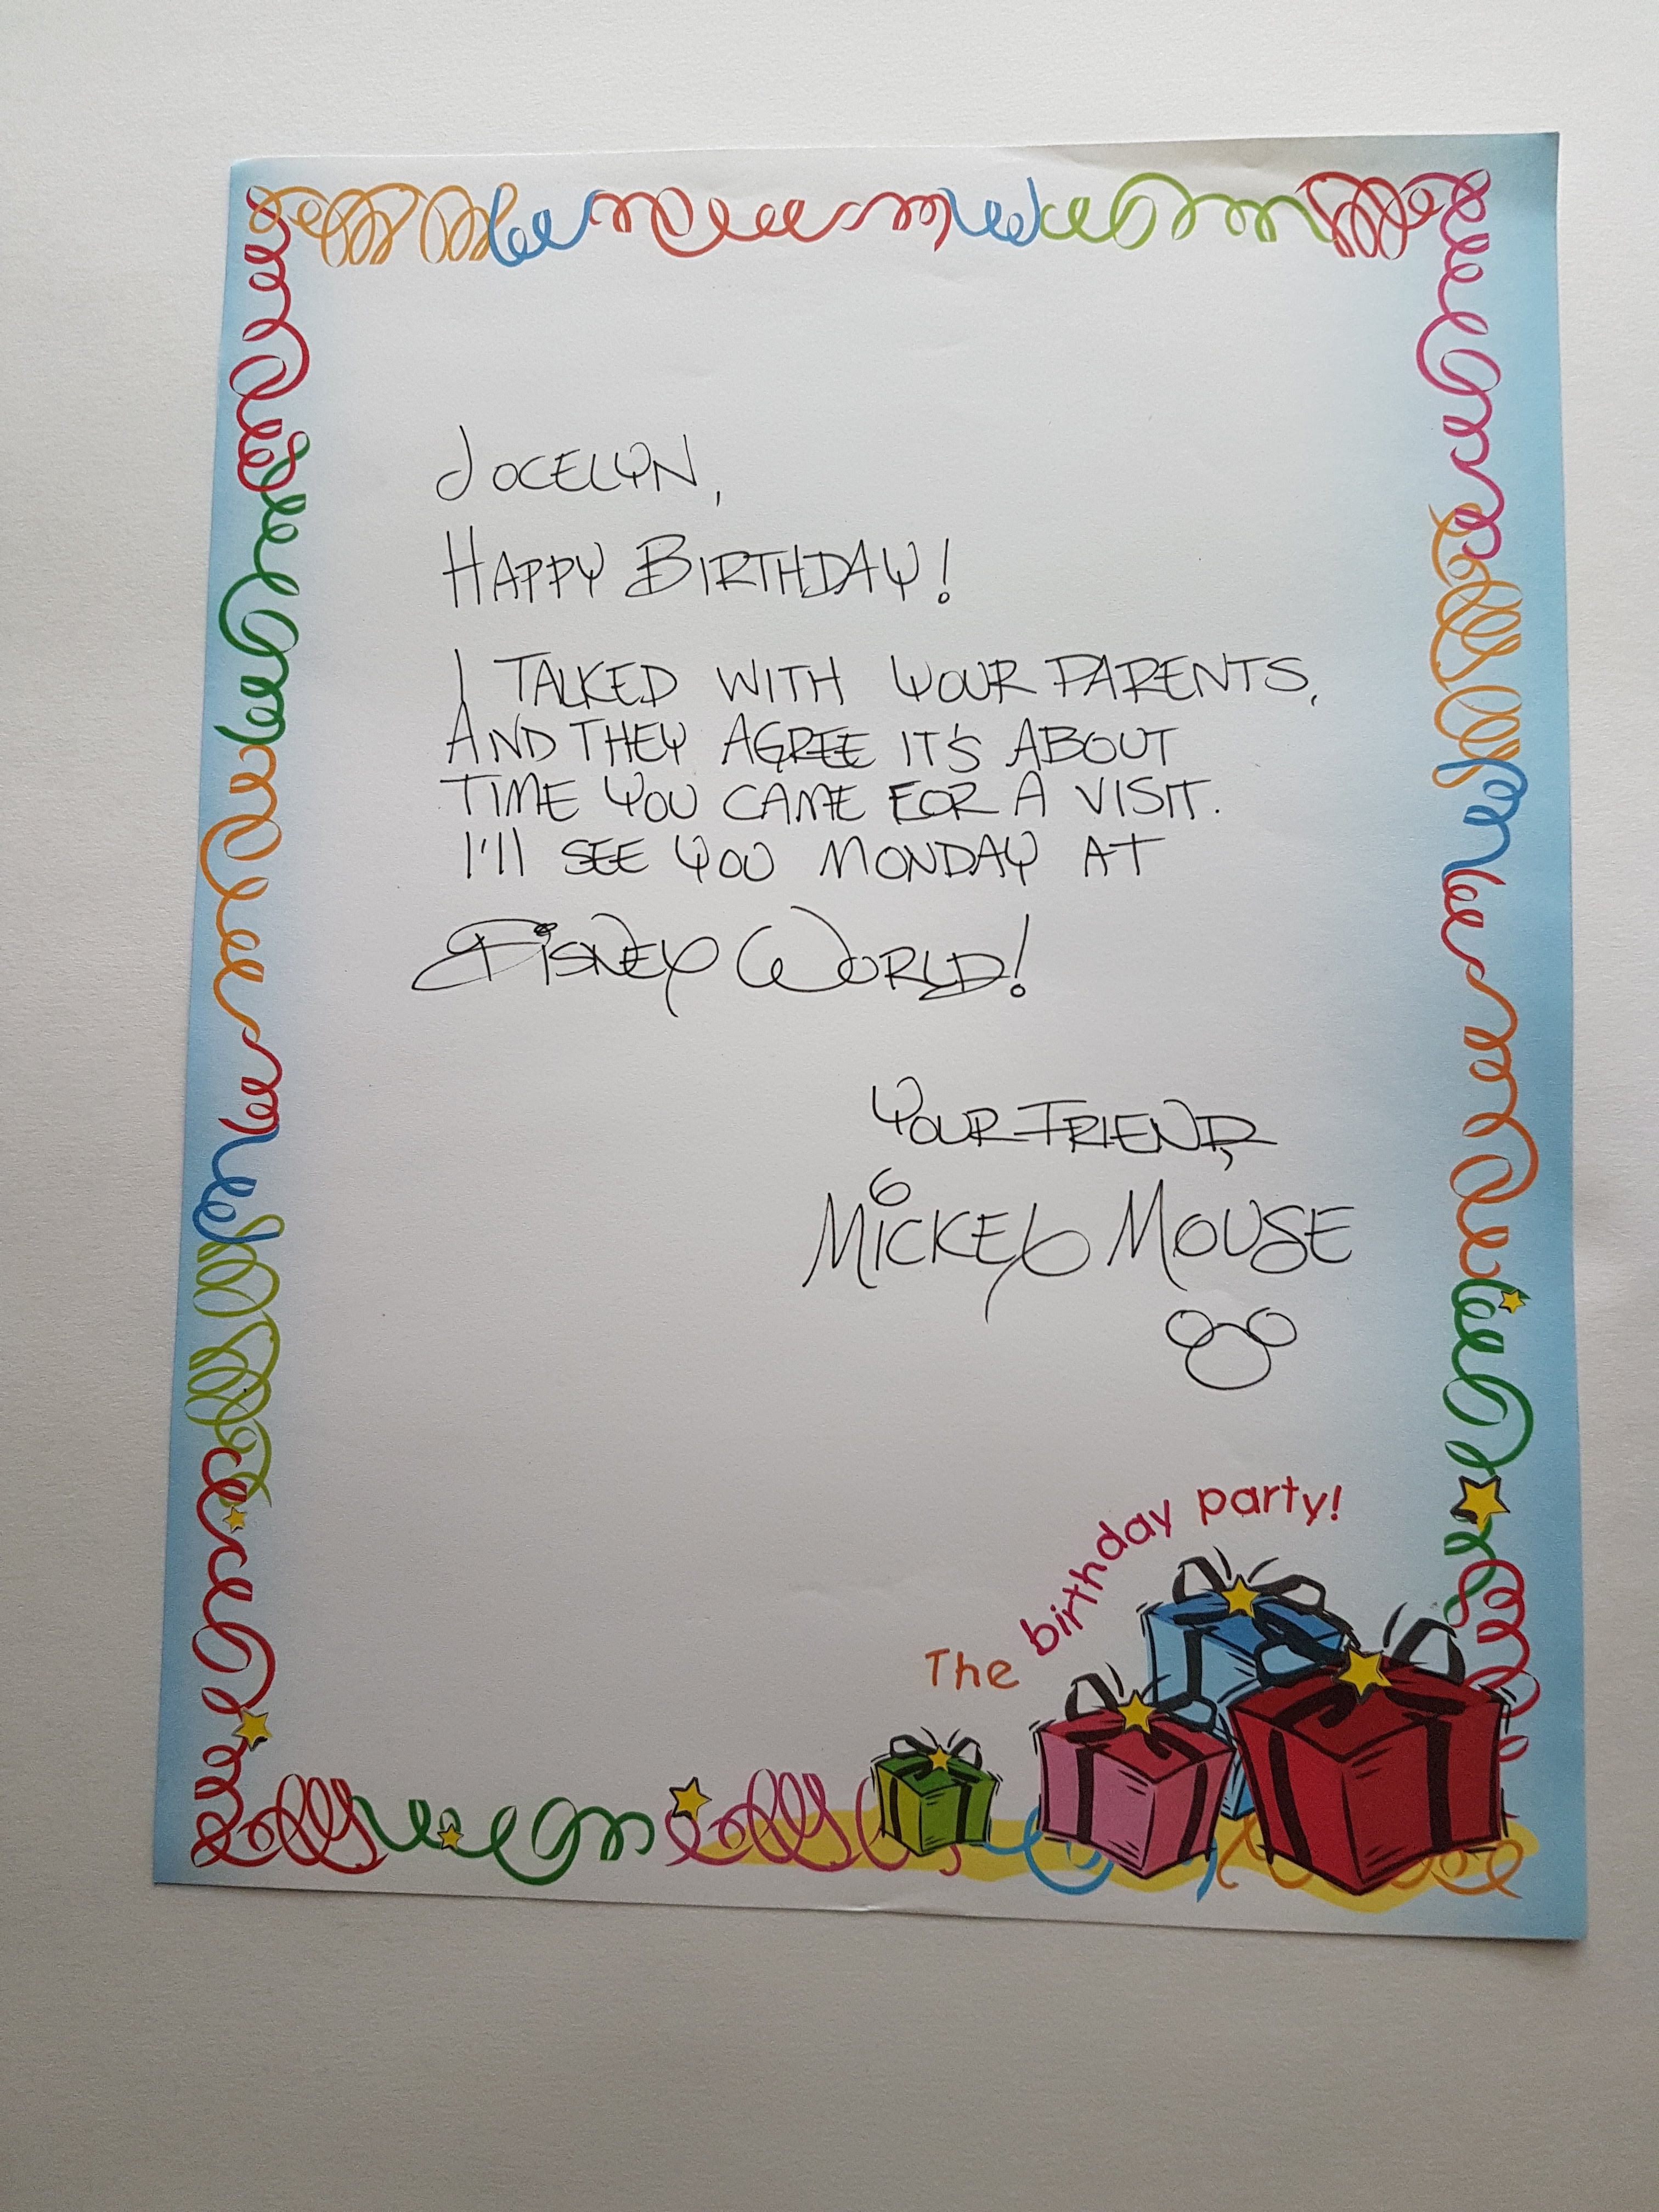 JOCELYN,
HAPPY BIRTHDAY!
I TALKED WITH YOUR PARENTS,
AND THEY AGREE IT'S ABOUT
TIME YOU CAME FOR A VISIT.
I'll SEE YOU MONDAY AT
DISNEY WORLD!
YOUR FRIEND,
MICKEY MOUSE
The birthday party!